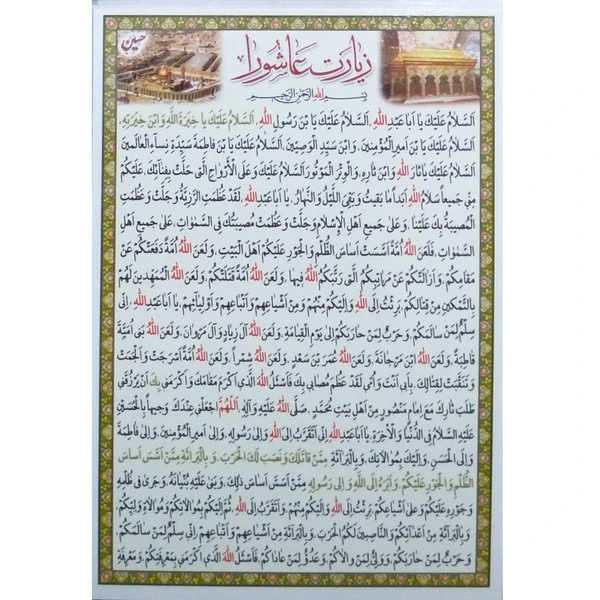 زیارت عاشورا
حسین
بِسْمِ اللهِ الرَّحْمٰنِ الرَّحیمِ
اَلسَّلامُ عَلَيْكَ يا اَبا عَبْدِ اللهِ، اَلسَّلامُ عَلَيْكَ يَا بْنَ رَسُولِ اللهِ، اَلسَّلامُ عَلَيْكَ يا خِيَرَةَ اللَّهِ وَابْنَ خِيَرَتِهِ،
اَلسَّلامُ عَلَيْكَ يَا بْنَ اَميرِ الْمُؤْمِنينَ، وَابْنَ سَيِّدِ الْوَصِيّينَ، اَلسَّلامُ عَلَيْكَ يَا بْنَ فاطِمَةَ سَيِّدَةِ نِساءِ الْعالَمينَ
اَلسَّلامُ عَلَيْكَ يا ثارَ اللهِ وَابْنَ ثارِهِ، وَالْوِتْرَ الْمَوْتُورَ اَلسَّلامُ عَلَيْكَ وَعَلَى الْاَرْواحِ الَّتى حَلَّتْ بِفِنائِكَ، عَلَيْكُمْ
مِنّى جَميعاً سَلامُ اللهِ اَبَداً ما بَقيتُ وَبَقِىَ اللَّيْلُ وَالنَّهارُ، يا اَبا عَبْدِ اللهِ، لَقَدْ عَظُمَتِ الرَّزِيَّةُ وَجَلَّتْ وَعَظُمَتِ
الْمُصيبَةُ بِكَ عَلَيْنا، وَعَلى جَميعِ اَهْلِ الْاِسْلامِ وَجَلَّتْ وَعَظُمَتْ مُصيبَتُكَ فِى السَّمٰواتِ، عَلى جَميعِ اَهْلِ
السَّمٰواتِ، فَلَعَنَ اللهُ اُمَّةً اَسَّسَتْ اَساسَ الظُّلْمِ وَالْجَوْرِ عَلَيْكُمْ اَهْلَ الْبَيْتِ، وَلَعَنَ اللهُ اُمَّةً دَفَعَتْكُمْ عَنْ
مَقامِكُمْ، وَاَزالَتْكُمْ عَنْ مَراتِبِكُمُ الَّتى رَتَّبَكُمُ اللهُ فيها، وَلَعَنَ اللهُ اُمَّةً قَتَلَتْكُمْ، وَلَعَنَ اللهُ الْمُمَهِّدينَ لَهُمْ
بِالتَّمْكينِ مِنْ قِتالِكُمْ، بَرِئْتُ اِلَى اللهِ وَاِلَيْكُمْ مِنْهُمْ وَمِنْ اَشْياعِهِمْ وَاَتْباعِهِمْ وَاَوْلِيائِهِمْ، يا اَبا عَبْدِ اللهِ، اِنّى
سِلْمٌ لِمَنْ سالَمَكُمْ، وَحَرْبٌ لِمَنْ حارَبَكُمْ اِلى يَوْمِ الْقِيامَةِ، وَلَعَنَ اللهُ آلَ زِيادٍ وَآلَ مَرْوانَ، وَلَعَنَ اللهُ بَنى اُمَيَّةَ
قاطِبَةً، وَلَعَنَ اللهُ ابْنَ مَرْجانَةَ، وَلَعَنَ اللهُ عُمَرَ بْنَ سَعْدٍ، وَلَعَنَ اللهُ شِمْراً، وَلَعَنَ اللهُ اُمَّةً اَسْرَجَتْ وَاَلْجَمَتْ
وَتَنَقَّبَتْ لِقِتالِكَ، بِاَبى اَنْتَ وَاُمّى لَقَدْ عَظُمَ مُصابى بِكَ فَاَسْئَلُ اللهَ الَّذى اَكْرَمَ مَقامَكَ وَاَكْرَمَنى بِكَ اَنْ يَرْزُقَنى
طَلَبَ ثارِكَ مَعَ اِمامٍ مَنْصُورٍ مِنْ اَهْلِ بَيْتِ مُحَمَّدٍ، صَلَّى اللهُ عَلَيْهِ وَآلِهِ، اَللّهُمَّ اجْعَلْنى عِنْدَكَ وَجيهاً بِالْحُسَيْنِ
عَلَيْهِ السَّلامُ فِى الدُّنْيا وَالْآخِرَةِ، يا اَبا عَبْدِ اللهِ اِنّى اَتَقَرَّبُ اِلَى اللهِ، وَاِلى رَسُولِهِ، وَاِلى اَميرِ الْمُؤْمِنينَ، وَاِلى فاطِمَةَ
وَاِلَى الْحَسَنِ، وَاِلَيْكَ بِمُوالاتِكَ، وَبِالْبَرائَةِ مِمَّنْ قاتَلَكَ وَنَصَبَ لَكَ الْحَرْبَ، وَبِالْبَرائَةِ مِمَّنْ اَسَّسَ اَساسَ
الظُّلْمِ وَالْجَوْرِ عَلَيْكُمْ، وَاَبْرَءُ اِلَى اللهِ وَاِلى رَسُولِهِ مِمَّنْ اَسَّسَ اَساسَ ذٰلِكَ، وَبَنى عَلَيْهِ بُنْيانَهُ، وَجَرى فى ظُلْمِهِ
وَجَوْرِهِ عَلَيْكُمْ وَعَلى اَشْياعِكُمْ، بَرِئْتُ اِلَى اللهِ وَاِلَيْكُمْ مِنْهُمْ، وَاَتَقَرَّبُ اِلَى اللهِ، ثُمَّ اِلَيْكُمْ بِمُوالاتِكُمْ وَمُوالاةِ وَلِيِّكُمْ،
وَبِالْبَرائَةِ مِنْ اَعْدائِكُمْ وَالنّاصِبينَ لَكُمُ الْحَرْبَ، وَبِالْبَرائَةِ مِنْ اَشْياعِهِمْ وَاَتْباعِهِمْ، اِنّى سِلْمٌ لِمَنْ سالَمَكُمْ،
وَحَرْبٌ لِمَنْ حارَبَكُمْ، وَوَلِىٌّ لِمَنْ والاكُمْ، وَعَدُوٌّ لِمَنْ عاداكُمْ، فَاَسْئَلُ اللهَ الَّذى اَكْرَمَنى بِمَعْرِفَتِكُمْ، وَمَعْرِفَةِ